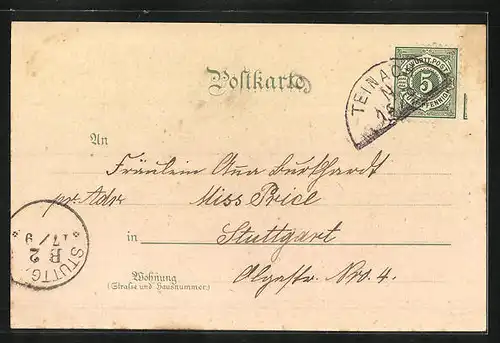 Postkarte
K. WÜRTT. POST
5
FÜNF PFENNIG
TEINACH
An
Fräulein Anna Burkhardt
pr. Adr. Miss Price
in Stuttgart
Olgastr. Nro. 4.
Wohnung
(Straße und Hausnummer)
STUTTG.
B 2
17/9